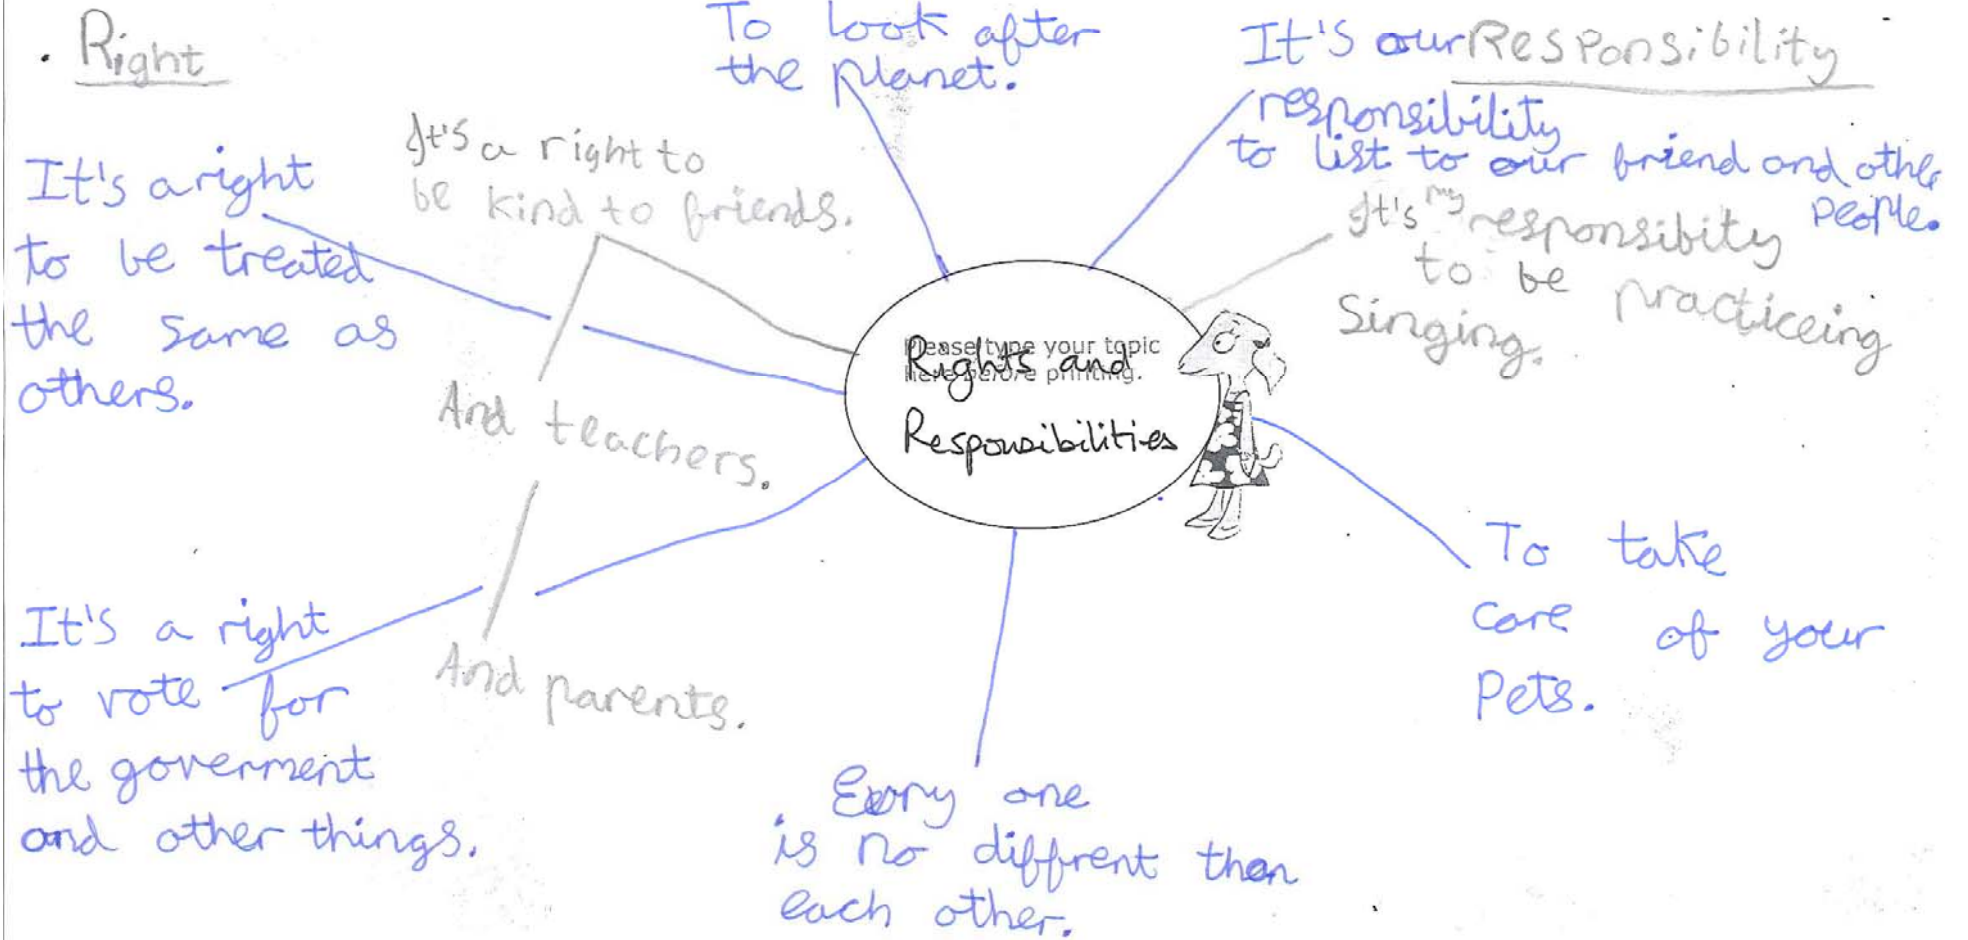 Right
It's a right
to be treated
the same as
others.
It's a right to
be kind to friends.
And teachers.
And parents.
It's a right
to vote for
the goverment
and other things.
To look after
the planet.
Please type your topic
here before printing.
Rights and
Responsibilities
Every one
is no diffrent then
each other.
Responsibility
It's our
responsibility
to list to our friend and othe
people.
It's my responsibity
to be practiceing
Singing.
To take
care of your
Pets.